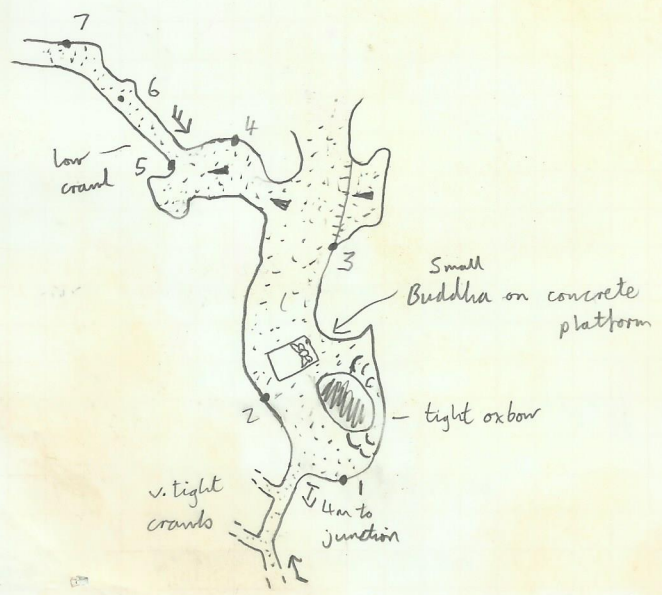 7
6
4
Low
crawl
5
3
Small
Buddha on concrete
platform
2
tight oxbow
1
v. tight
crawls
4m to
junction